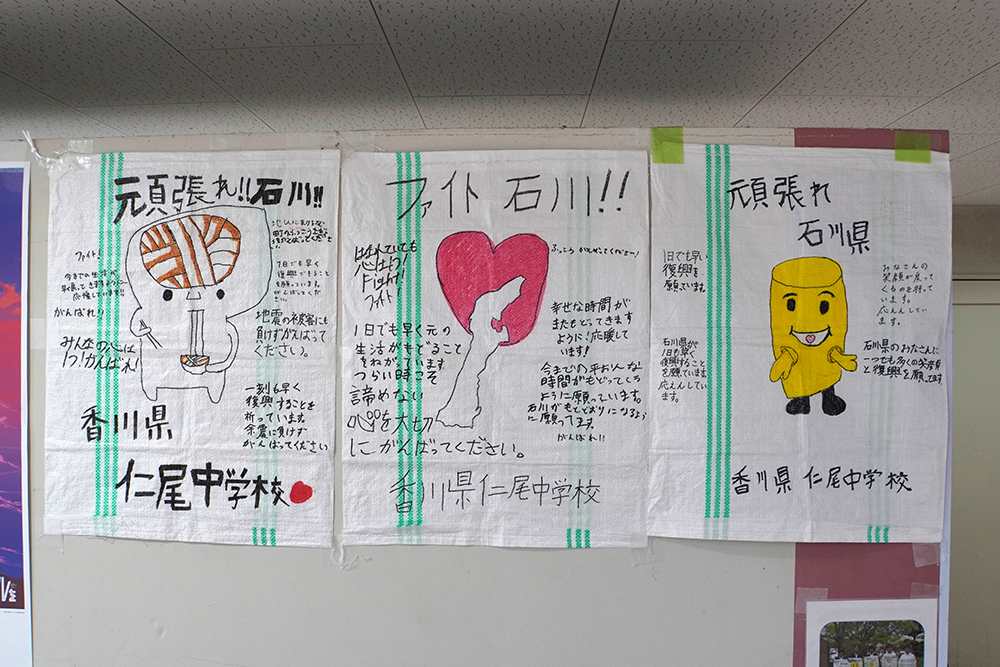 頑張れ!!石川!!
ファイト!
がんばれ!!
みんなの心は
1つ!がんばれ!
地震の被害にも
負けずがんばって
ください。
1日でも早く
復興できること
を願っています。
がんばってくだ
さい。
一刻も早く
復興することを
祈っています。
余震に負けず
がんばってください
香川県
仁尾中学校
ファイト 石川!!
離れていても
心は1つ!
Fight!
ファイト!
1日でも早く元の
生活がもどること
をねがっています
つらい時こそ
諦めない
心を大切
にがんばってください。
ふっこう がんばってください!
幸せな時間が
またもどってきます
ように!応援して
います!
時間がもどってくる
ように願っています。
石川がもとどおりになるよう
に願ってます。
がんばれ!!
香川県仁尾中学校
頑張れ
石川県
1日でも早い
復興を
願っています。
石川県が
1日も早く
復興すること
を願っています
応えんしてい
ます。
みなさんの
笑顔が戻って
くるのを待って
います。
応えんしてい
ます。
石川県のみなさんに
一つでも多くの笑顔
と復興を願ってます
香川県 仁尾中学校